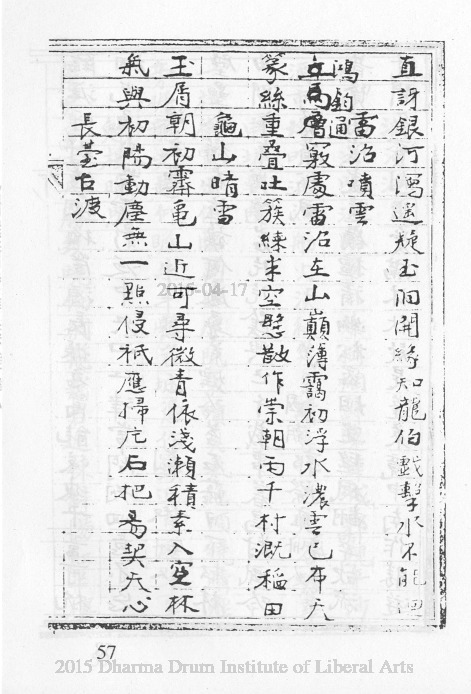 直訝銀河瀉遙疑玉洞開緣知龍伯戲擊水不能
雷沼噴雲
鴻鈞通竅處雷沼在山巔薄靄初浮水濃雲已布天
篆絲重叠吐簇練半空懸散作崇朝雨千村溉稲田
龜山晴雪
玉屑朝初霽龜山近可尋微青依淺瀨積素入空林
氣與初陽動塵無一點侵柢應掃石把易契天心
長臺古渡
2016-04-17
57
2015 Dharma Drum Institute of Liberal Arts